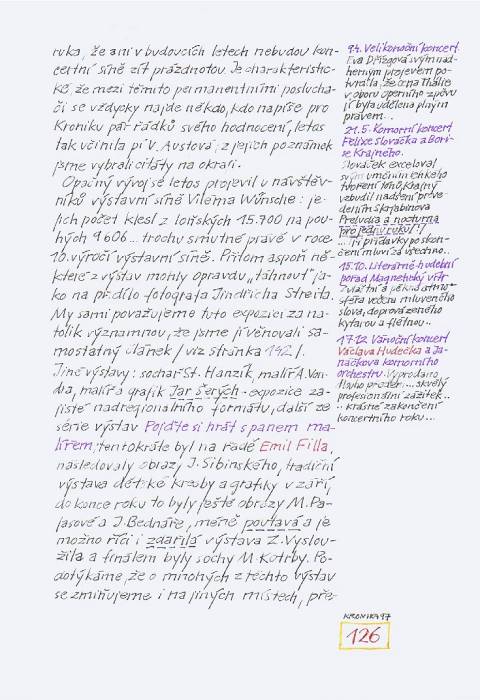 ruka, že ani v budoucích letech nebudou kon-
certní síně zít prázdnotou. Je charakteristic-
ké, že mezi těmito permanentními poslucha-
či se vždycky najde někdo, kdo napíše pro
Kroniku pár řádků svého hodnocení, letos
tak učinila pí V. Austová; z jejích poznámek
jsme vybrali citáty na okraji.
Opačný vývoj se letos projevil u návštěv-
níků výstavní síně Viléma Wünsche: je-
jich počet klesl z loňských 15.700 na pou-
hých 9606... trochu smutné právě v roce
10. výročí výstavní síně. Přitom aspoň ně-
které z výstav mohly opravdu „táhnout", ja-
ko na příklad fotografa Jindřicha Štreita.
My sami považujeme tuto expozici za na-
tolik významnou, že jsme jí věnovali sa-
mostatný článek / viz stránka 142 /.
Jiné výstavy: sochař St. Hanzík, malíř A. Von-
dra, malíř a grafik Jar. Šerých - expozice za-
jisté nadregionálního formátu, další ze
série výstav Pojďte si hrát s panem ma-
lířem, tentokráte byl na řadě Emil Filla,
následovaly obrazy J. Sibinského, tradiční
výstava dětské kresby a grafiky v září,
do konce roku to byly ještě obrazy M. Pa-
lasové a J. Bednáře, méně poutavá a je
možno říci i zdařilá výstava Z. Vyslou-
žila a finálem byly sochy M. Kotrby. Po-
dotýkáme, že o mnohých z těchto výstav
se zmiňujeme i na jiných místech, pře-
9.4. Velikonoční koncert.
Eva Dřízgová svým nád-
herným projevem po-
tvrdila, že cena Thálie
v oboru operního zpěvu
jí byla udělena plným
právem..
21.5. Komorní koncert
Felixe Slováčka a Bori-
se Krajného.
Slováček exceloval
svým uměním lehkého
tvoření tónů, Krajný
vzbudil nadšení prove-
dením Skrjabinova
Preludia a nocturna
pro jednu ruku (!)
...Tři přídavky po skon-
čení mluví za všechno..
15.10. Literárně-hudební
pořad Magnetický vítr
Zvláštní a pěkná atmo-
sféra večera mluveného
slova, doprovázeného
kytarou a flétnou..
17.12. Vánoční koncert
Václava Hudečka a Ja-
náčkova komorního
orchestru. Vyprodáno.
... skvělý
profesionální zážitek..
.. krásné zakončení
koncertního roku...
KRONIKA 97
126